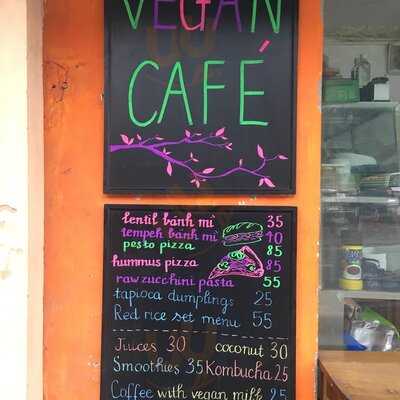 VEGAN
CAFÉ
lentil bánh mì 35
tempeh bánh mì 40
pesto pizza 85
hummus pizza 85
raw zucchini pasta 55
tapioca dumplings 25
Red rice set menu 55
Juices 30 coconut 30
Smoothies 35 Kombucha 25
Coffee with vegan milk 25